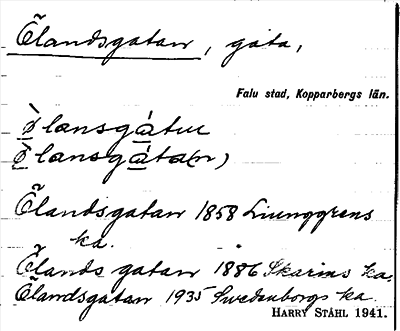 Ölandsgatan, gata,
Falu stad, Kopparbergs län.
ø̀lansgátu
ø̀lansgáta(n)
Ölandsgatan 1858 Ljunggrens
ka.
Ölands gatan 1886 Skarins ka.
Ölandsgatan 1935 Swedenborgs ka
HARRY STÅHL 1941.